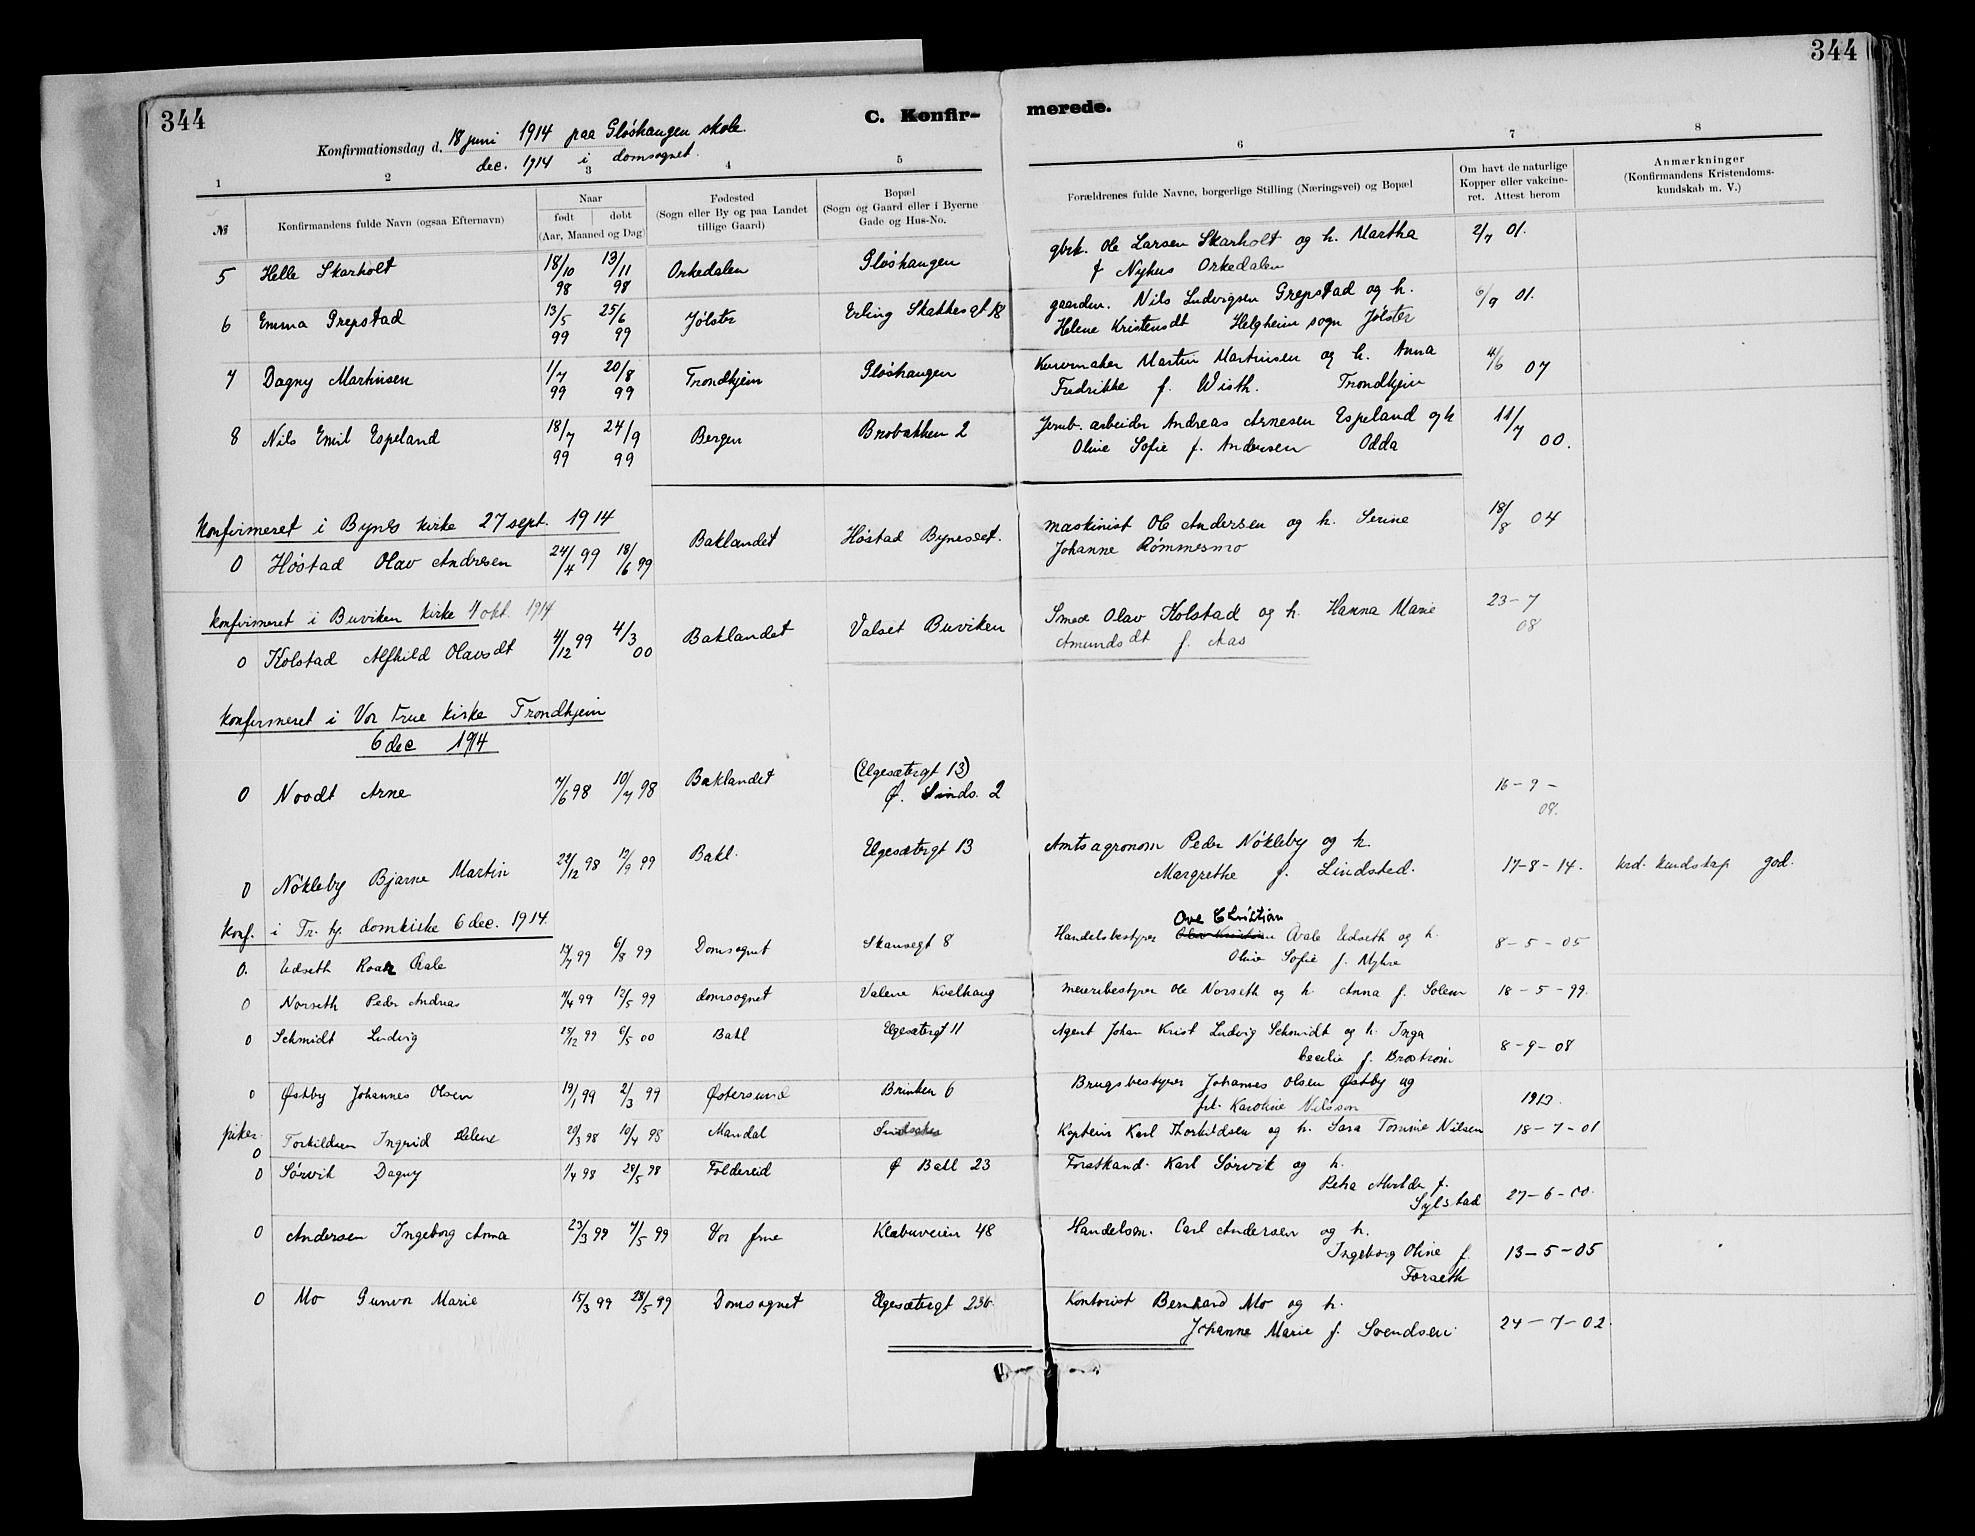 344
344
C. Konfir- merede.
Konfirmationsdag d. 18 juni 1914 paa Gløshaugen skole.
dec. 1914 i domsognet.
1 2 3 4 5 6 7 8
№
Konfirmandens fulde Navn (ogsaa Efternavn)
Naar
født døbt
(Aar, Maaned og Dag)
Fødested
(Sogn eller By og paa Landet
tillige Gaard)
Bopæl
(Sogn og Gaard eller i Byerne
Gade og Hus-No.
Forældrenes fulde Navne, borgerlige Stilling (Næringsvei) og Bopæl
Om havt de naturlige
Kopper eller vakcine-
ret. Attest herom
Anmærkninger
(Konfirmandens Kristendoms-
kundskab m. V.)
5 Helle Skarholt 18/10 98 13/11 98 Orkedalen Gløshaugen gbrk. Ole Larsen Skarholt og h. Martha 2/7 01.
f Nyhus Orkedalen
6 Emma Grepstad 13/5 99 25/6 99 Jølster Erling Skakkesgt 18 gaardm. Nils Ludvigsen Grepstad og h. 6/9 01.
Helene Kristensdt Helgheim sogn Jølster
7 Dagny Martinsen 1/7 99 20/8 99 Trondhjem Gløshaugen Kurvmaker Martin Martinsen og h. Anna 4/6 07
Fredrikke f. Wisth. Trondhjem
8 Nils Emil Espeland 18/7 99 24/9 99 Bergen Brobakken 2 Jernb. arbeider Andreas Arnesen Espeland og h 11/7 00.
Oline Sofie f. Andersen Odda
Konfirmeret i Bynes kirke 27 sept. 1914
0 Høstad Olav Andresen 24/4 99 18/6 99 Baklandet Høstad Bynesset. maskinist Ole Andersen og h. Serine 18/8 04
Johanne Rømmesmo
Konfirmeret i Buviken kirke 4 okt. 1914
0 Kolstad Alfhild Olavsdt 4/12 99 4/3 00 Baklandet Valset Buviken Smed Olav Kolstad og h. Hanna Marie 23-7 08
Amundsdt f. Aas
Konfirmeret i Vor Frue kirke Trondhjem
6 dec 1914
0 Noodt Arne 7/6 98 10/7 98 Baklandet (Elgesætergt 13)
Ø. Sinds. 2 16-9-08.
0 Nökleby Bjarne Martin 22/12 98 12/9 99 Bakl. Elgesætergt 13 Amtsagronom Peder Nökleby og h. 17-8-14. krd. kundskap god.
Margrethe f. Lindsted.
Konf. i Tr. hj. domkirke 6 dec. 1914
Ove Christian
0. Udseth Roar 6/8 99 Domsognet Skansegt 8 Handelsbestyrer Udseth og h. 8-5-05
Oline Sofie f. Myhre
0 Norseth Peder Andreas 7/4 99 12/5 99 domsognet Valene Kvelhaug meieribestyrer Ole Norseth og h. Anna f. Solem 18-5-99.
0 Schmidt Ludvig 15/12 99 6/5 00 Bakl Elgesætergt 11 Agent Johan Krist Ludvig Schmidt og h. Inga 8-9-08
Cecilie f. Broström
0 Østby Johannes Olsen 19/1 99 2/3 99 Østersund Brinken 6 Brugsbestyrer Johannes Olsen Østby og 1913.
frk. Karoline Nilsson
piker.
0 Torkildsen Ingrid Helene 20/3 98 10/4 98 Mandal Kaptein Karl Thorkildsen og h. Sara Tomine Nilsen 18-7-01
0 Sørvik Dagny 1/4 98 28/5 98 Foldereid Ø Bakl 23 Forstkand. Karl Sørvik og h.
Petra f.
Sylstad 27-6-00.
0 Andersen Ingeborg Anna 23/3 99 7/5 99 Vor frue Klæbuveien 48 Handelsm. Carl Andersen og h.
Ingeborg Oline f. 13-5-05
Forseth
0 Mo Gunvor Marie 15/3 99 28/5 99 Domsognet Elgesætergt 23b. Kontorist Bernhard Mo og h.
Johanne Marie f. Svendsen 24-7-02.